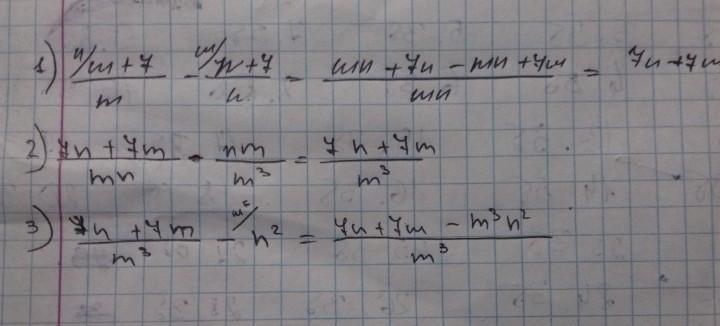 1) ⁿ/m+7/m - ᵐ/n+7/n = mn+7n-mn+7m/mn = 7n+7m
2) 7n+7m/mn · nm/m³ = 7n+7m/m³
3) 7n+7m/m³ - /n² = 7n+7m-m³n²/m³